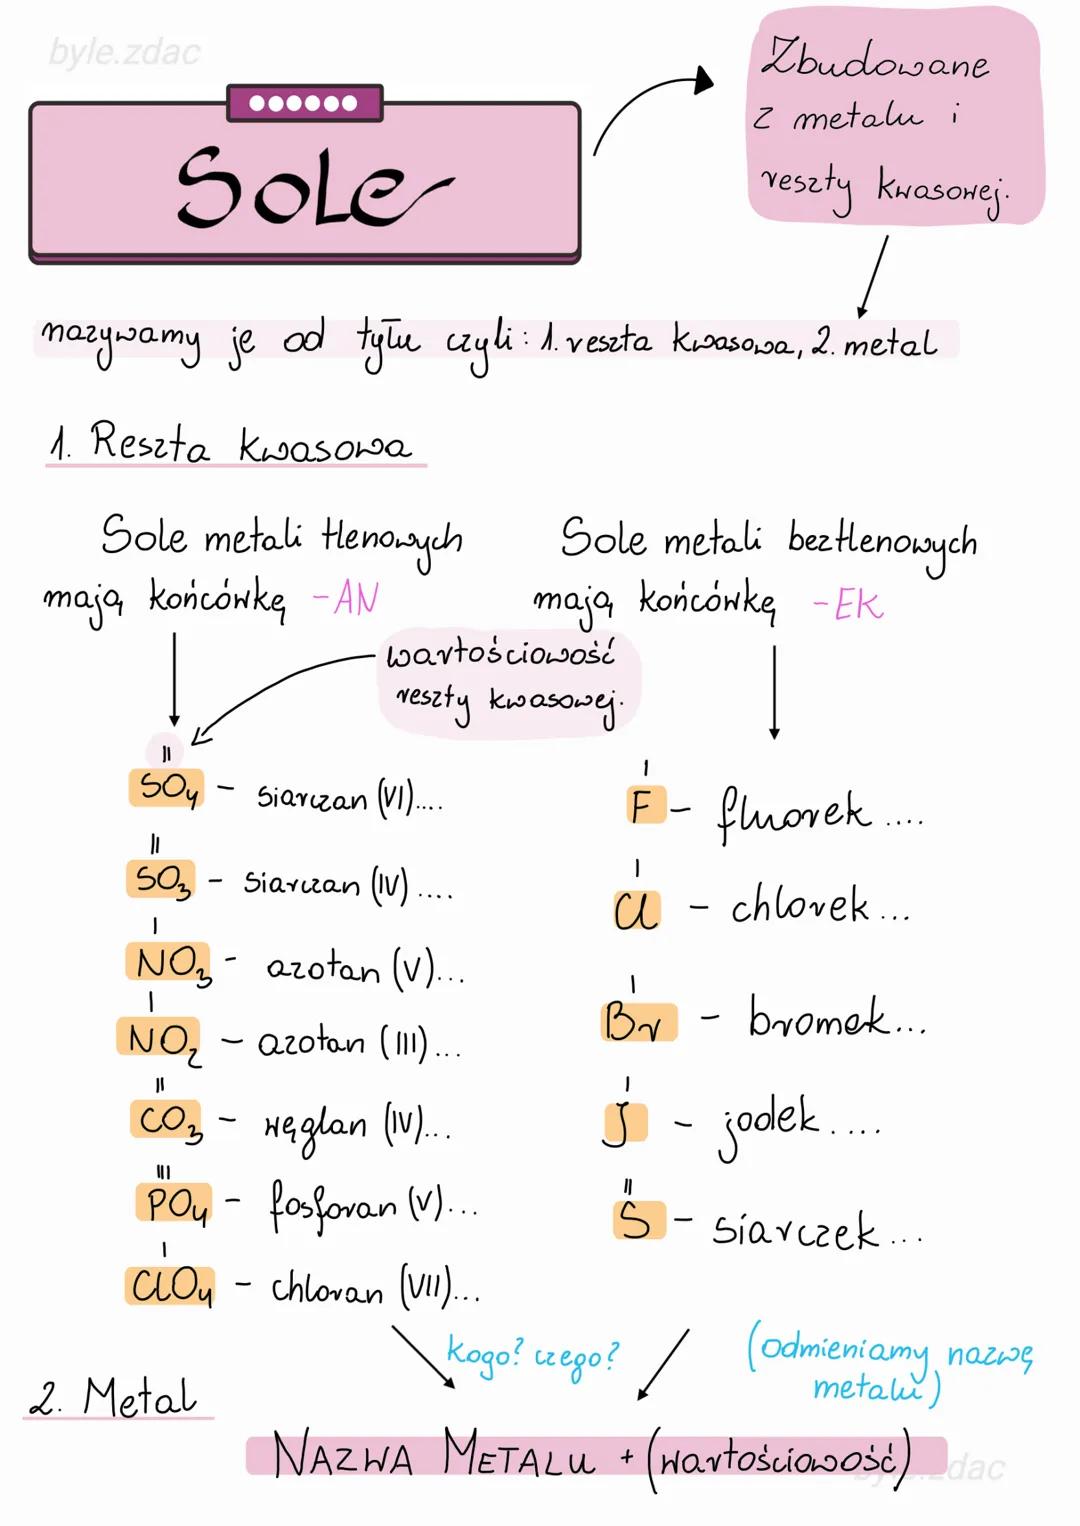 byle.zdac
Sole
Zbudowane
z metalu i
reszty kwasowej.
nazywamy je od tyłu czyli: 1. reszta kwasowa, 2. metal
1. Reszta kwasowa
Sole metali tlenowych
mają końcówkę -AN
Sole metali beztlenowych
mają końcówkę -EK
wartościowość
reszty kwasowej.
II
SO4 - siarczan (VI)....
II
SO3 - siarczan (IV)....
I
NO3 - azotan (V)...
I
NO2 - azotan (III)...
II
CO3 - węglan (IV)...
III
PO4 - fosforan (V)...
I
ClO4 - chloran (VII)...
I
F - fluorek ....
I
Cl - chlorek ...
I
Br - bromek...
I
J - jodek ....
II
S - siarczek ...
kogo? czego?
(odmieniamy nazwę
metalu)
2. Metal
NAZWA METALU + (wartościowość)
byle.zdac